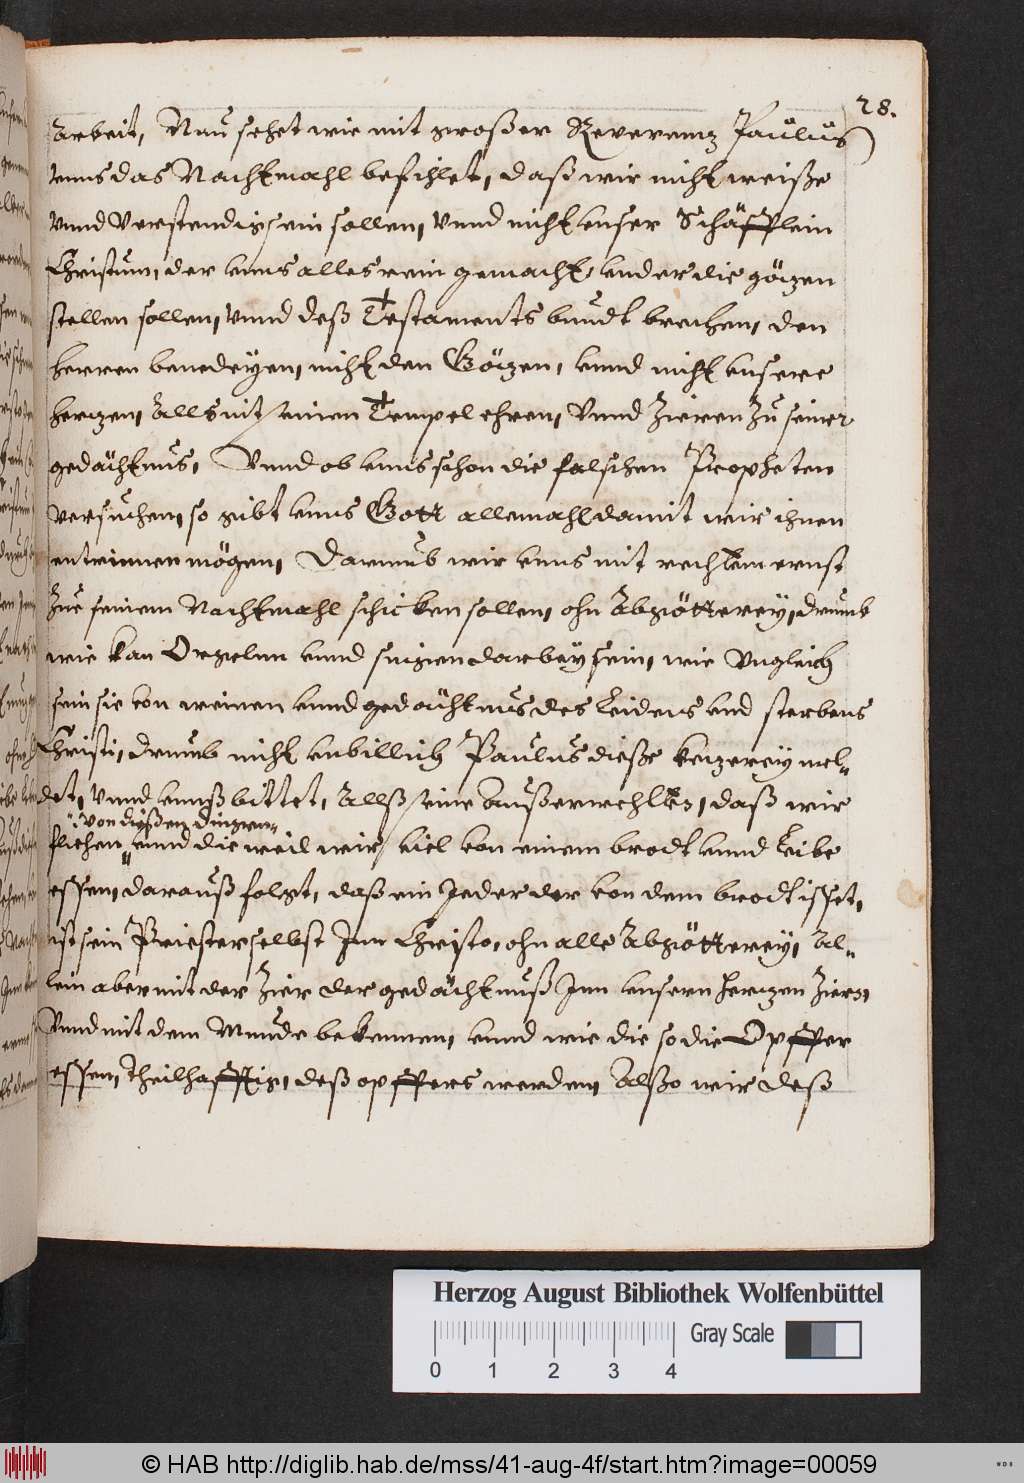 28.
Arbeit, Nun sehet wie mit großer Reverentz Paulus
vnns das Nachtmahl befihlet, daß wir nicht weiße
vnnd Verstendig sein sollen, vnnd nicht vnser Schäfflein
Christum, der vnns alles rein gemacht, vnder die götzen
stellen sollen, vnnd deß Testaments bundt brechen, den
herren benedeyen, nicht den Götzen, vnnd nicht vnsere
hertzen, Alls mit seinen Tempel ehren, Vnnd Zieren Zu seiner
gedächtnus, Vnnd ob vnns schon die falschen Propheten
versuchen, so gibt vnns Gott allemahl damit wir ihnen
entrinnen mögen, Darumb wir vnns mit rechtem ernst
Zue seinem Nachtmahl schicken sollen, ohn Abgötterey, drumb
wie kan Orgelnn vnnd singen darbey sein, wie Vngleich
sein sie von weinen vnnd gedächtnus des Leidens vnd sterbens
Christi, drumb nicht vnbillich Paulus dieße ketzerey mel-
det, vnnd vnnß bittet, Allß seine Außerwehlten, daß wir
von dießen dingen
fliehen, vnnd die weil wir viel von einem brodt vnnd Leibe
essen, darauß folgt, daß ein Jeder der von dem brodt isset,
ist sein Priester selbst Inn Christo, ohn alle Abgötterey, Al-
lein aber mit der Zier der gedächtnuß Inn vnsern hertzen Ziern,
Vnnd mit dem Munde bekennen, vnnd wie die so die Opffer
essen, theilhafftig, deß opffers werden, Alßo wir deß
Herzog August Bibliothek Wolfenbüttel
Gray Scale
0 1 2 3 4
© HAB http://diglib.hab.de/mss/41-aug-4f/start.htm?image=00059